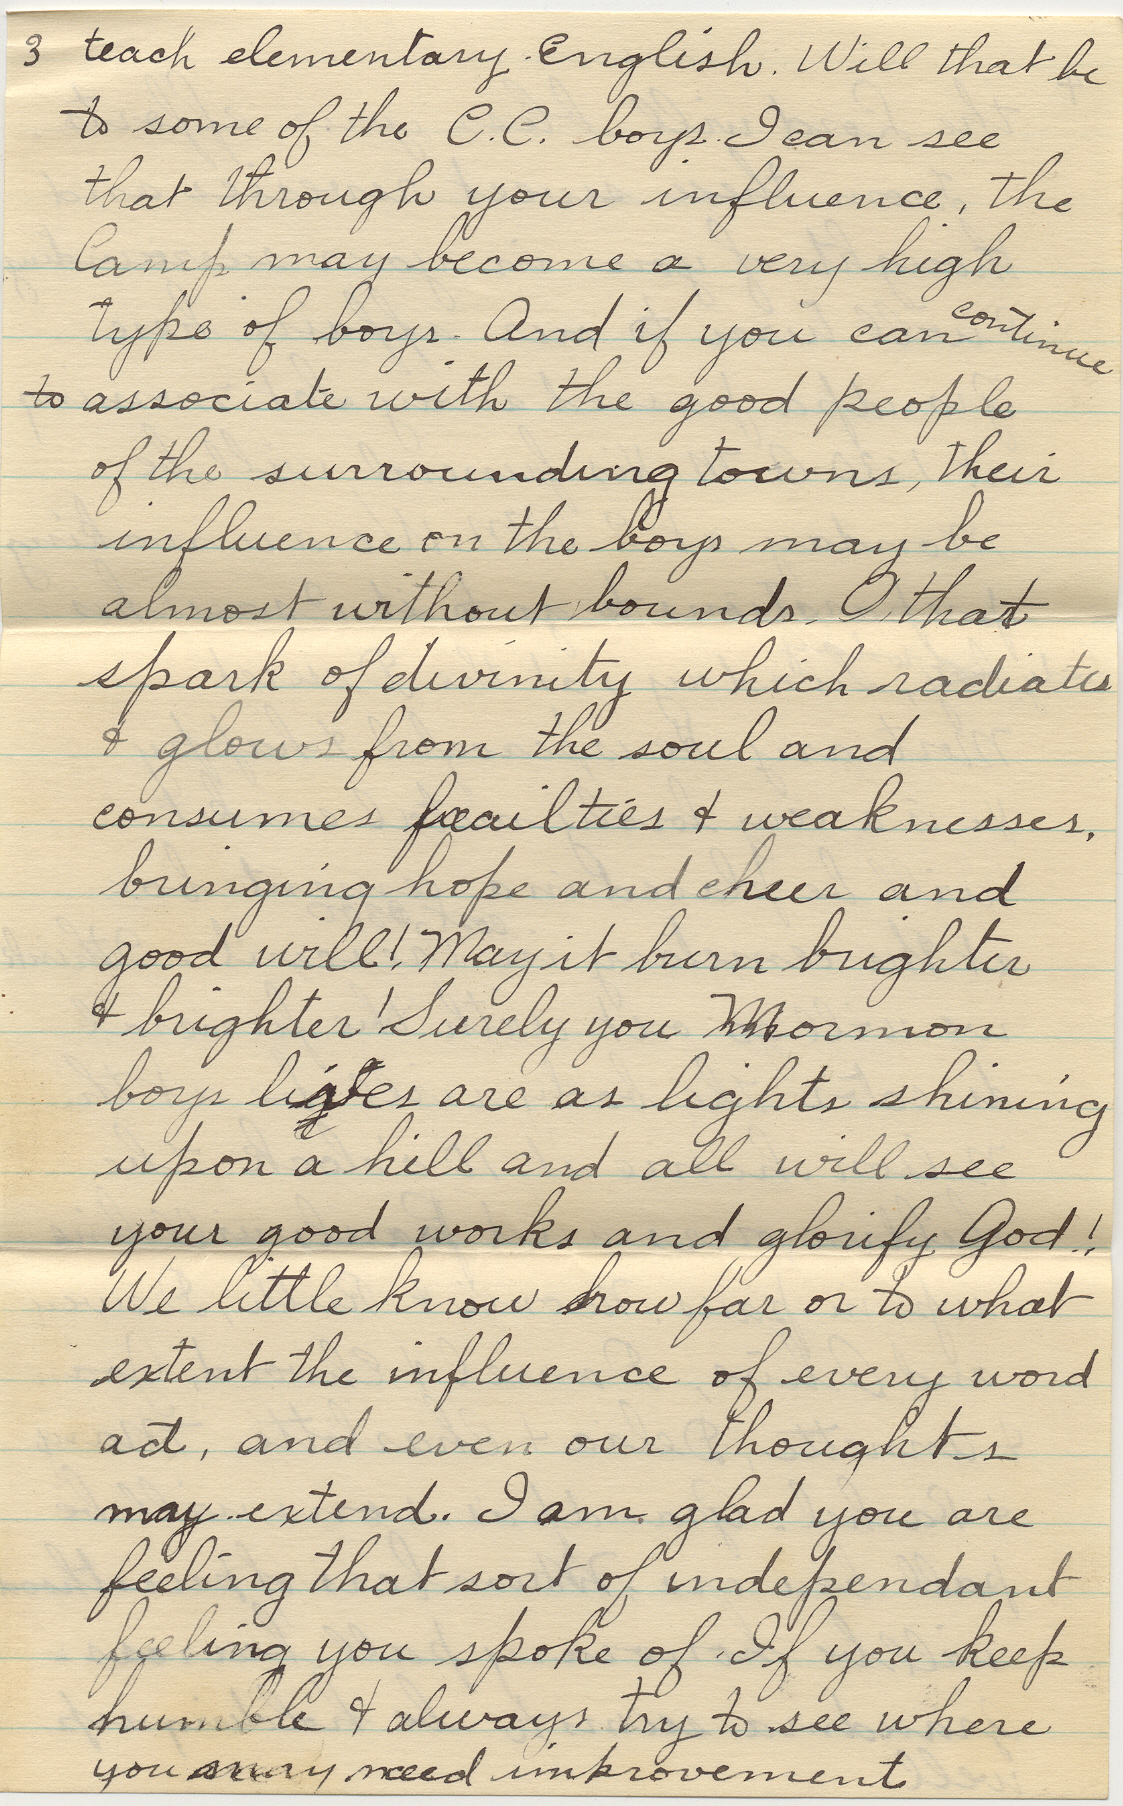 3 teach elementary English. Will that be
to some of the C.C. boys. I can see
that through your influence, the
Camp may become a very high
type of boys. And if you can continue
to associate with the good people
of the surrounding towns, their
influence on the boys may be
almost without bounds. O that
spark of divinity which radiates
& glows from the soul and
consumes frailties & weaknesses,
bringing hope and cheer and
good will! May it burn brighter
& brighter! Surely you Mormon
boys lives are as lights shining
upon a hill and all will see
your good works and glorify God!
We little know how far or to what
extent the influence of every word
act, and even our thoughts
may extend. I am glad you are
feeling that sort of independant
feeling you spoke of. If you keep
humble & always try to see where
you may need improvement